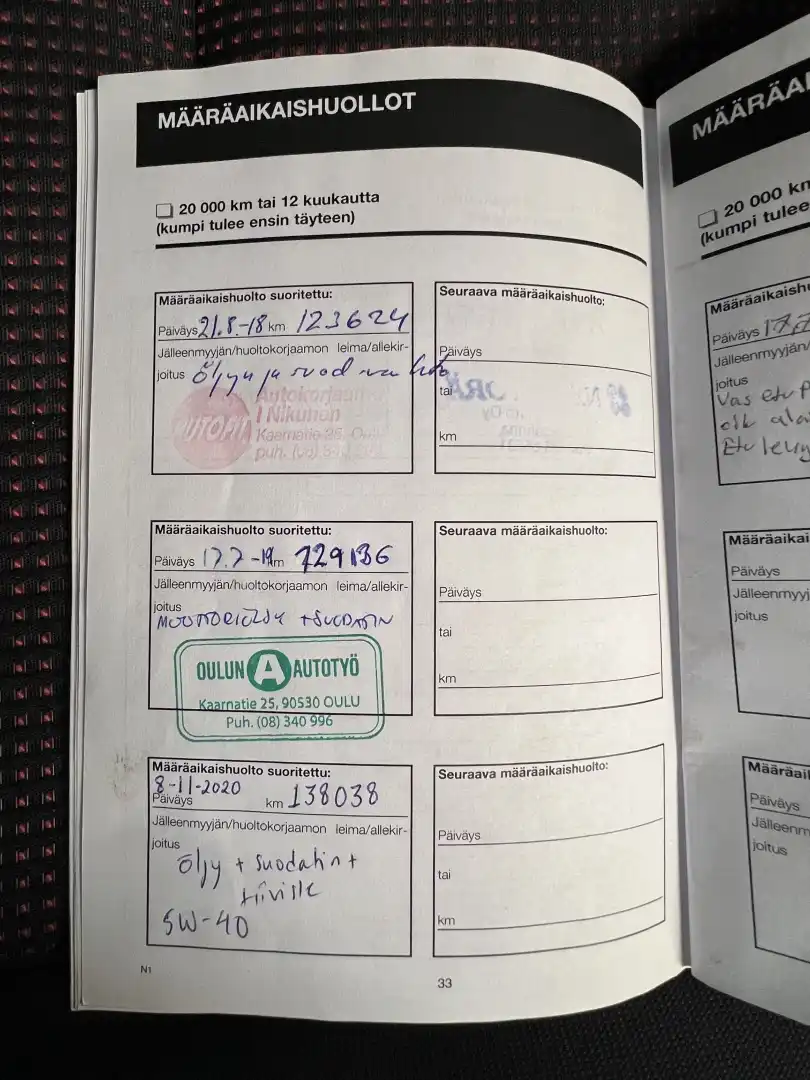 MÄÄRÄAIKAISHUOLLOT
20 000 km tai 12 kuukautta
(kumpi tulee ensin täyteen)
Määräaikaishuolto suoritettu:
Päiväys 21.8.-18 km 123624
Jälleenmyyjän/huoltokorjaamon leima/allekir-
joitus öljyn ja suod vaihto
AUTOFIT
Autokorjaamo
I Nikunen
Kaarnatie 25, Oulu
puh. (08)
Seuraava määräaikaishuolto:
Päiväys
tai
km
Määräaikaishuolto suoritettu:
Päiväys 17.7-19 km 129136
Jälleenmyyjän/huoltokorjaamon leima/allekir-
joitus
MOOTTORIÖLJY +SUODATIN
OULUN A AUTOTYÖ
Kaarnatie 25, 90530 OULU
Puh. (08) 340 996
Seuraava määräaikaishuolto:
Päiväys
tai
km
Määräaikaishuolto suoritettu:
8-11-2020
Päiväys km 138038
Jälleenmyyjän/huoltokorjaamon leima/allekir-
joitus
öljy + suodatin +
tiiviste
5W-40
Seuraava määräaikaishuolto:
Päiväys
tai
km
N1
33
MÄÄRÄAI
20 000 km
(kumpi tulee
Määräaikaishu
Päiväys
Jälleenmyyjän/
joitus
Vas etu
Määräaikai
Päiväys
Jälleenmyyj
joitus
Määräai
Päiväys
Jälleenm
joitus